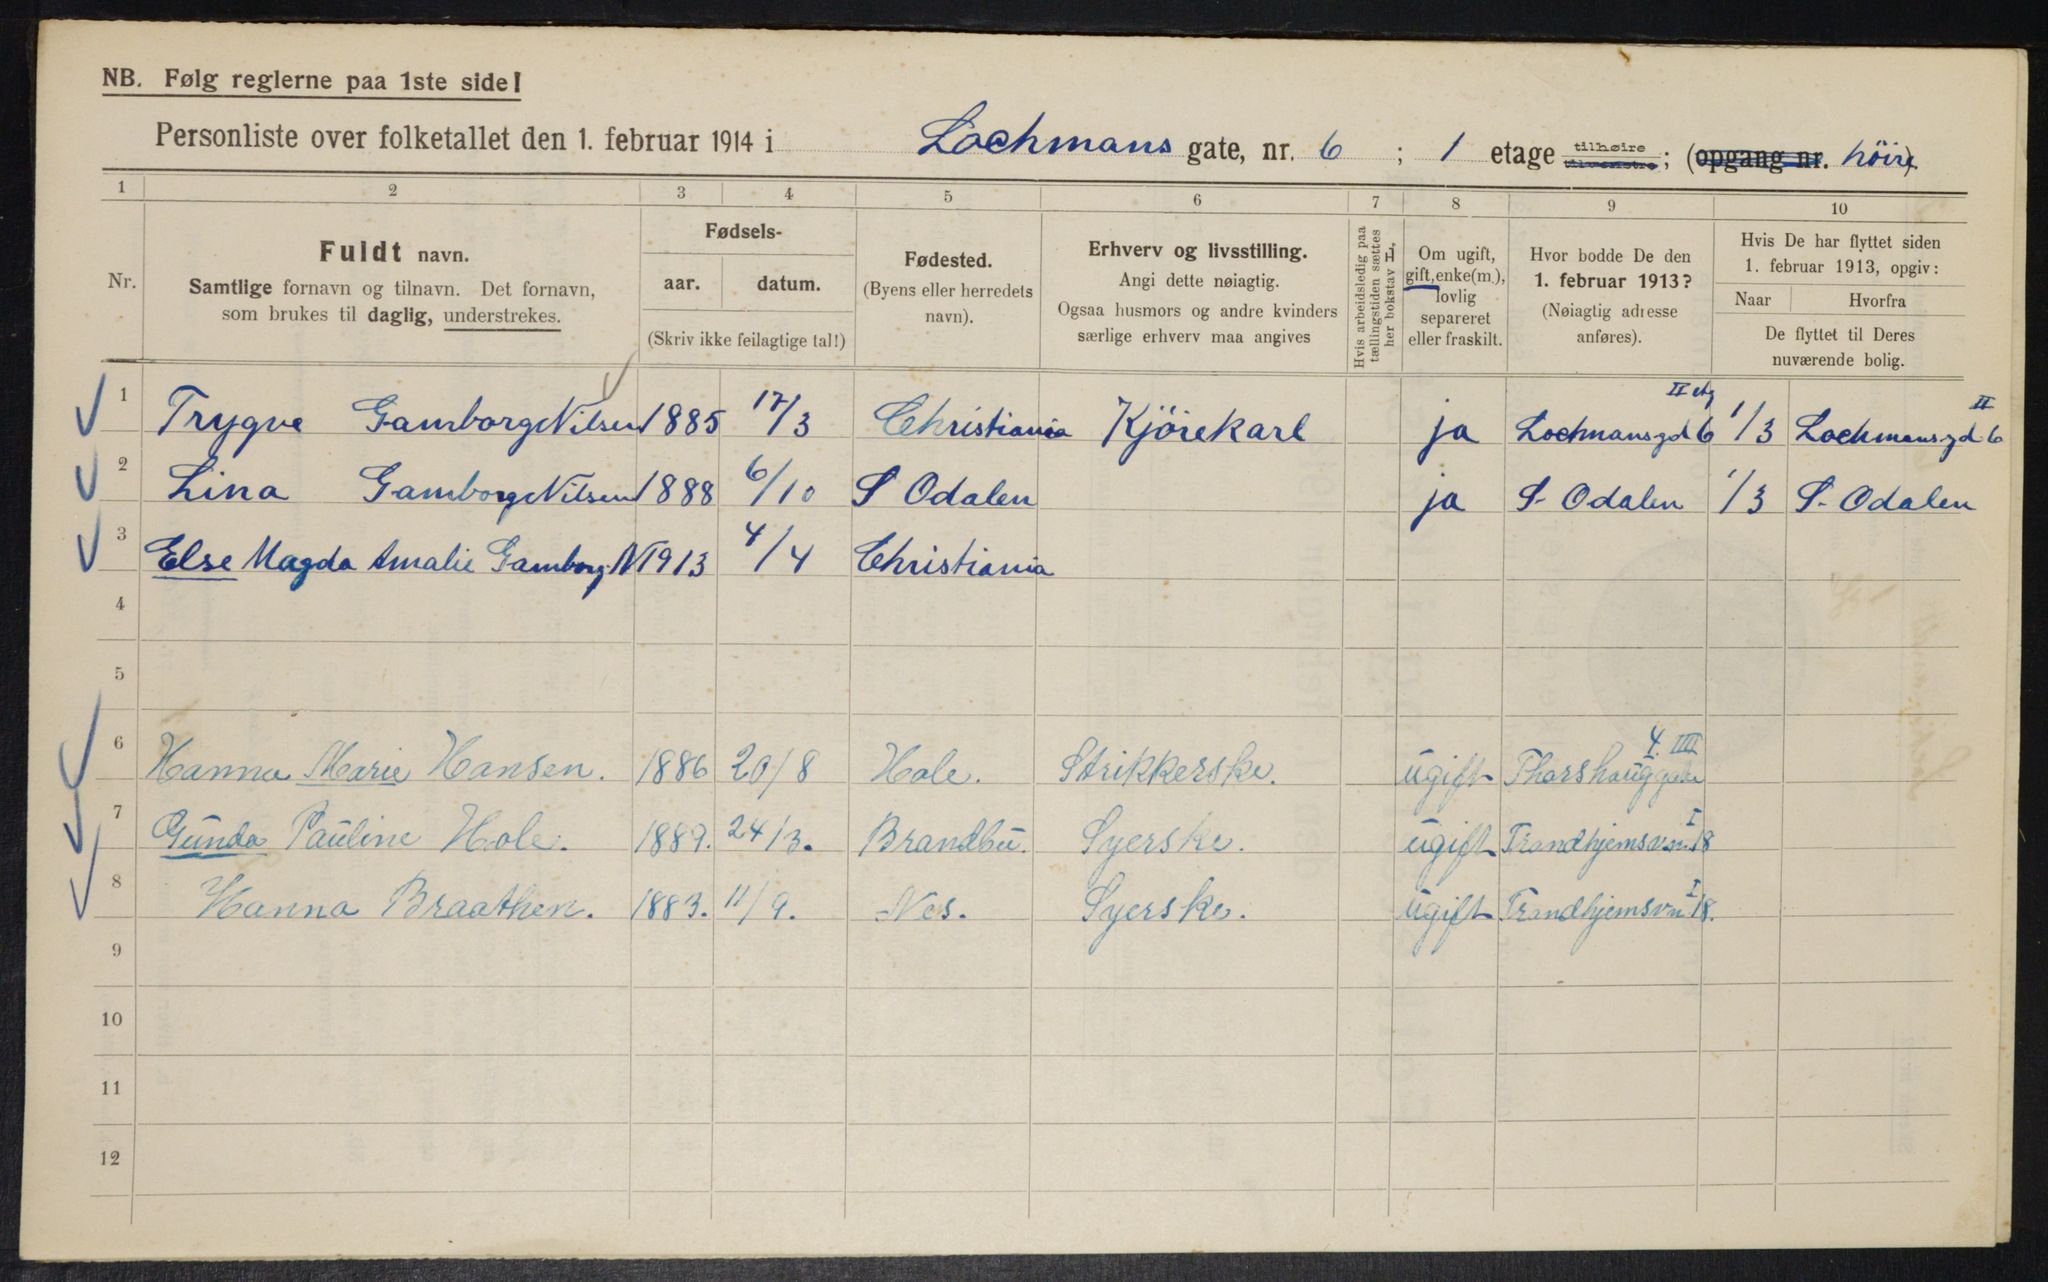 NB. Følg reglerne paa 1ste side!
Personliste over folketallet den 1. februar 1914 i Lochmans gate, nr. 6 ; 1 etage tilhøire tilvenstre; (opgang nr. höire).
1 2 3 4 5 6 7 8 9 10
Nr.
Fuldt navn.
Samtlige fornavn og tilnavn. Det fornavn,
som brukes til daglig, understrekes.
Fødsels-
aar. datum.
(Skriv ikke feilagtige tal!)
Fødested.
(Byens eller herredets
navn).
Erhverv og livsstilling.
Angi dette nøiagtig.
Ogsaa husmors og andre kvinders
særlige erhverv maa angives
Hvis arbeidsledig paa
tællingstiden sættes
her bokstav L,
Om ugift,
gift, enke(m.),
lovlig
separeret
eller fraskilt.
Hvor bodde De den
1. februar 1913?
(Nøiagtig adresse
anføres).
Hvis De har flyttet siden
1. februar 1913, opgiv:
Naar Hvorfra
De flyttet til Deres
nuværende bolig.
1 Trygve Gamborg Nilsen 1885 17/3 Christiania Kjörekarl ja Lochmansgd 6 II etg 1/3 Lochmansgd 6 II
2 Lina Gamborg Nilsen 1888 6/10 S Odalen ja S- Odalen 1/3 S- Odalen
3 Else Magda Amalie Gamborg N 1913 4/4 Christiania
4
5
6 Hanna Marie Hansen. 1886 20/8 Hole. Strikkerske. ugift Thorshauggata 4. IIII
7 Gunda Pauline Hole. 1889. 24/3. Brandbu. Syerske. ugift Trondhjemsvn. 18 I
8 Hanna Braathen. 1883. 11/9. Nes. Syerske. ugift Trondhjemsvn 18. I
9
10
11
12